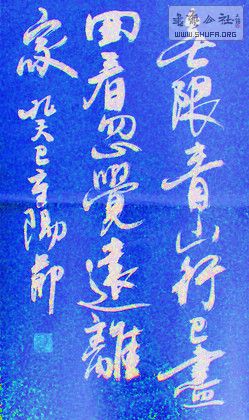 無限青山行已盡
回看忽覺遠離
家 陽節
公社
WWW.SHUFA.ORG